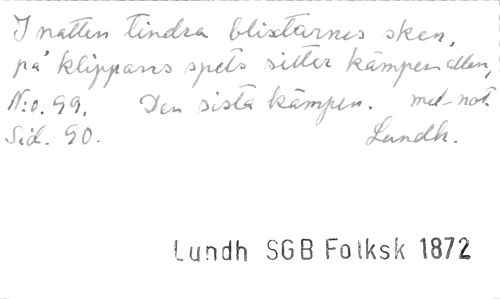 I natten tindra blixtarnes sken,
på klippans spets sitter kämpen allen,
N:o. 99. Den sista kämpen. med not.
Sid. 90. Lundh.
Lundh SGB Folksk 1872